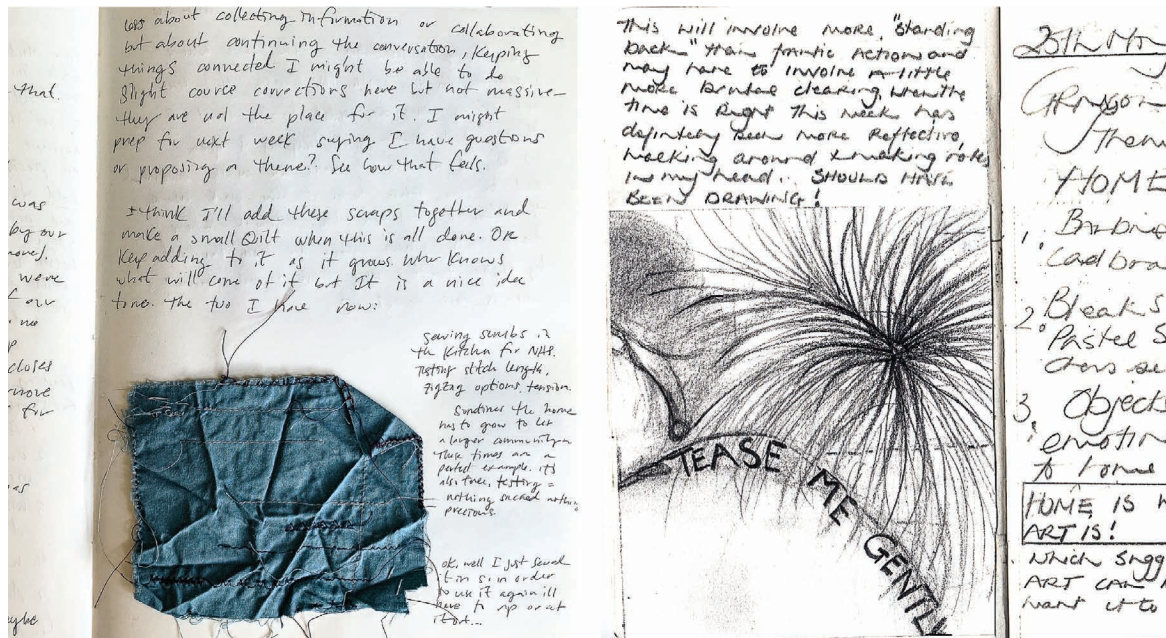 that.
was
by our
were
our
no
closes
more
for
was
maybe
less about collecting information or collaborating
but about continuing the conversation, keeping
things connected I might be able to do
slight cource corrections here but not massive–
they are not the place for it. I might
prep for next week saying I have questions
or proposing a theme? See how that feels.
I think I'll add these scraps together and
make a small Quilt when this is all done. Or
keep adding to it as it grows. Who knows
what will come of it but It is a nice idea
to me. The two I have now:
sewing scrubs in
the kitchen for NHS.
Testing stitch length,
zigzag options, tension.
Sometimes the home
has to grow to let
a larger community in
These times are a
perfect example. it's
also true, testing =
nothing sacred nothing
precious.
ok, well I just sewed
it in so in order
to use it again ill
have to rip or at
it out...
This will involve more "standing
back" than frantic Action and
may have to involve a little
more Brutal clearing, when the
time is Right This week has
definitely been more Reflective,
walking around & making notes
in my head.. SHOULD HAVE
BEEN DRAWING!
TEASE ME GENTLY
25th
Grayson
HOME
1,
2,
Pastel
3, Objects
to home
HOME IS
ART IS!
which
ART CAN
want it to